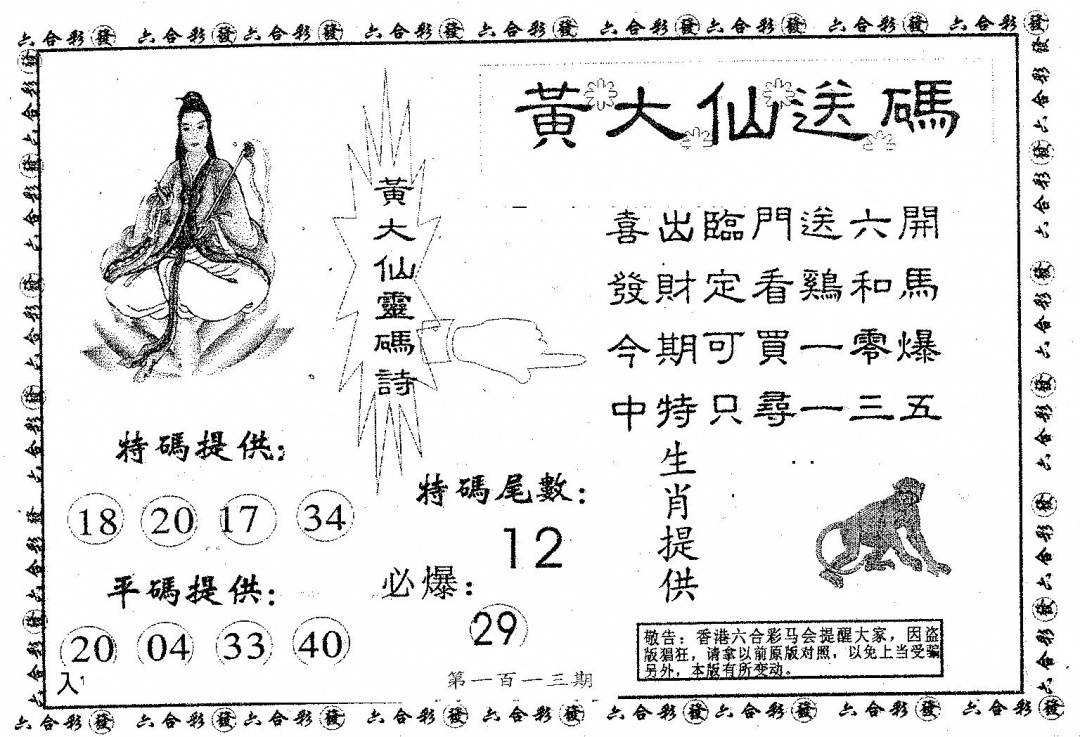 六合彩發 六合彩發六合彩發 六合彩發 六合彩發 六合彩發六合彩發 六合彩發 六合彩發
黃大仙送碼
黃大仙靈碼詩
喜出臨門送六開
發財定看鷄和馬
今期可買一零爆
中特只尋一三五
特碼提供:
18 20 17 34
平碼提供:
20 04 33 40
特碼尾數:
12
必爆:
29
生肖提供
敬告：香港六合彩马会提醒大家，因盗
版猖狂，请拿以前原版对照，以免上当受骗
另外，本版有所变动。
第一百一十三期
六合彩發 六合彩發六合彩發 六合彩發 六合彩發 六合彩發六合彩發 六合彩發 六合彩發